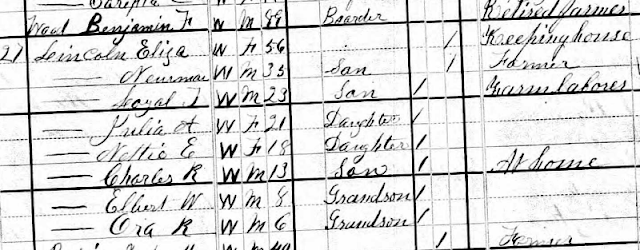 Wood Benjamin F W M 88 Boarder Retired farmer
27 Lincoln Eliza W F 56 1 Keeping house
— Newman W M 35 Son 1 Farmer
— Loyal T W M 23 Son 1 Farm labores
— Julia A W F 21 Daughter 1
— Nettie E W F 18 Daughter 1
— Charles R W M 13 Son 1 At home
— Elbert W W M 8 Grandson 1
— Ora R W M 6 Grandson 1
1 Farmer